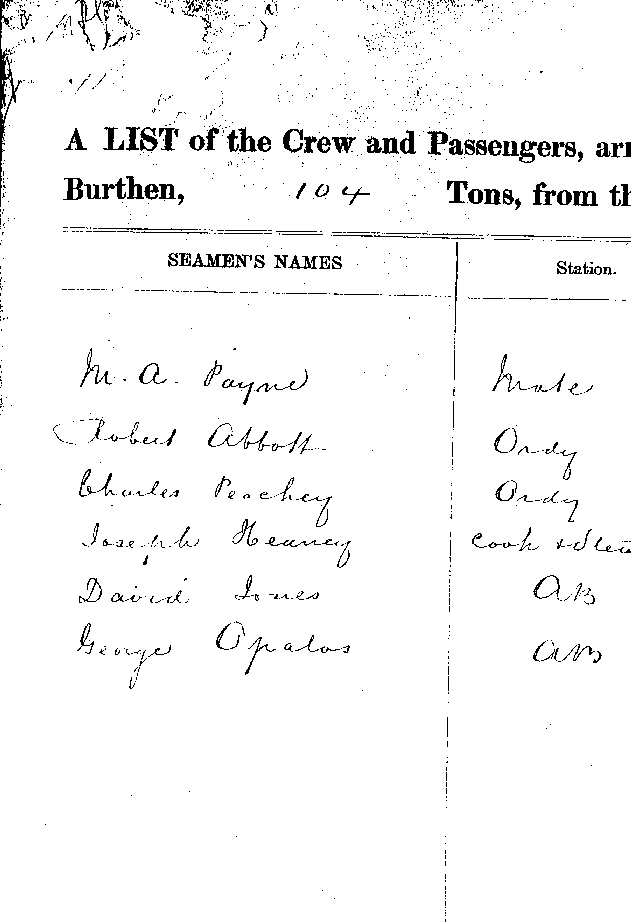 A LIST of the Crew and Passengers, arr
Burthen, 104 Tons, from th
SEAMEN'S NAMES Station.
M. A. Payne Mate
Robert Abbott Ordy
Charles Peachey Ordy
Joseph Heaney Cook & Stew
David Jones AB
George Opalos AB